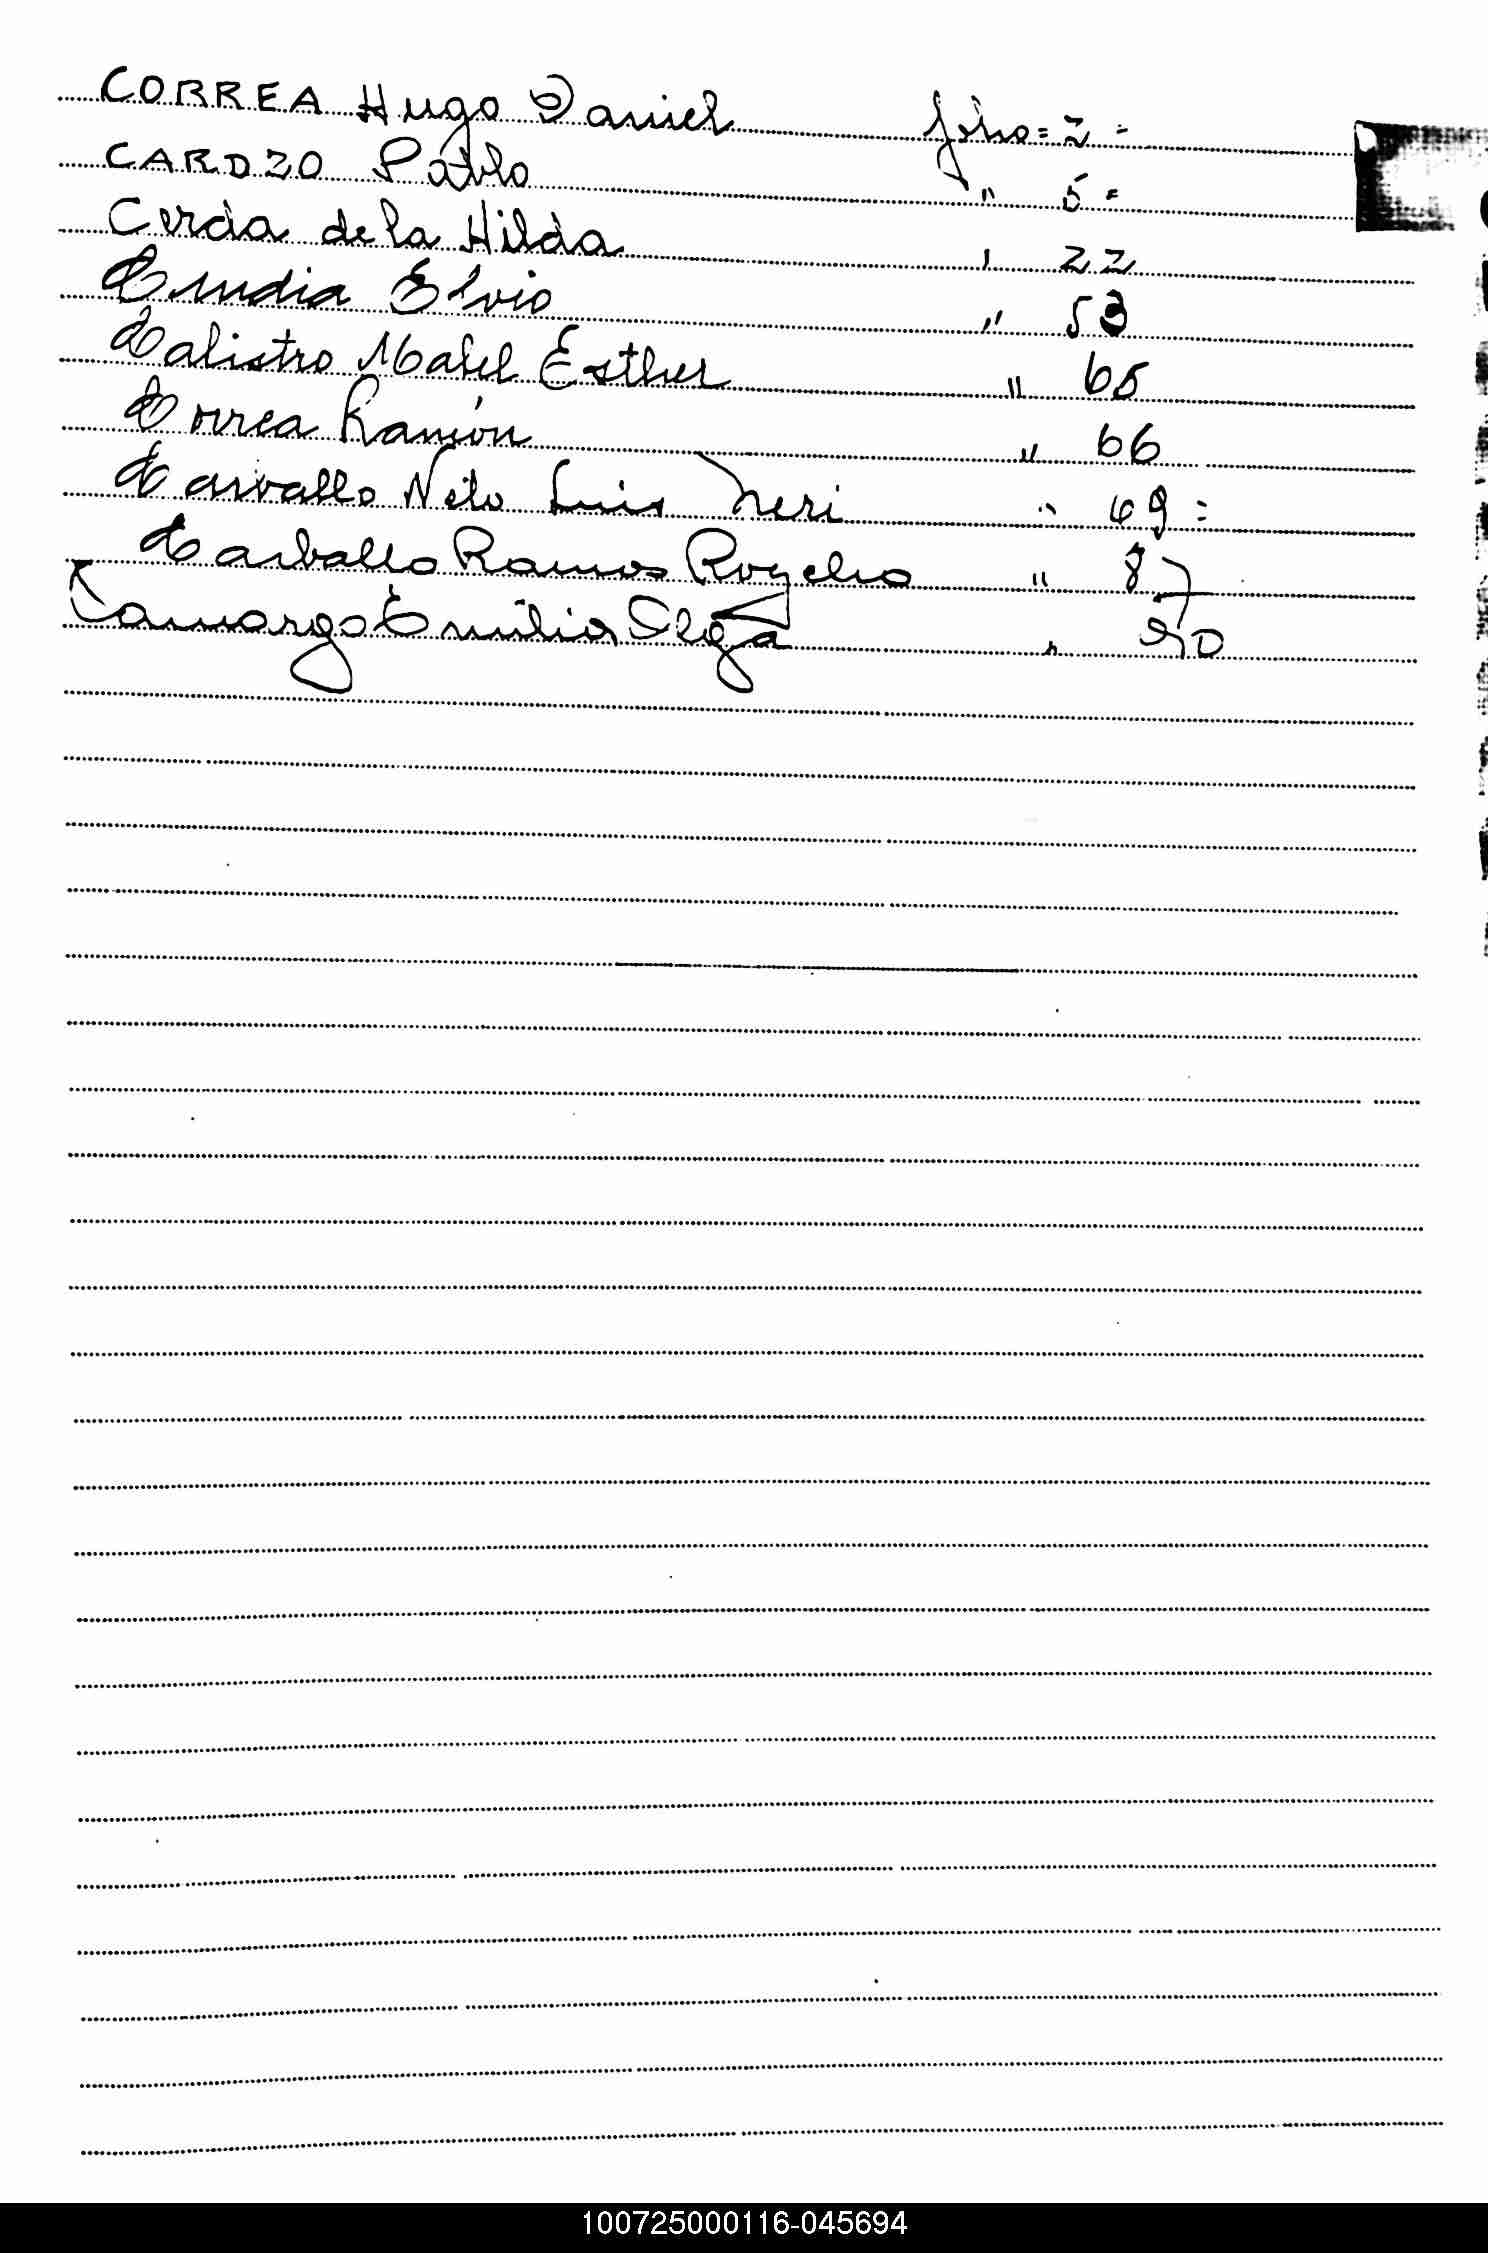 CORREA Hugo Daniel folio = 2 =
CARDOZO Pablo " 5 =
Cerda de la Hilda " 22
Elvio " 53
Calistro Mabel Esther " 65
Correa Ramón " 66
Carvallo Neto Luis Neri " 69 =
Carballo Ramos Rogelio " 87
Camargo Emilia Olga " 90
100725000116-045694